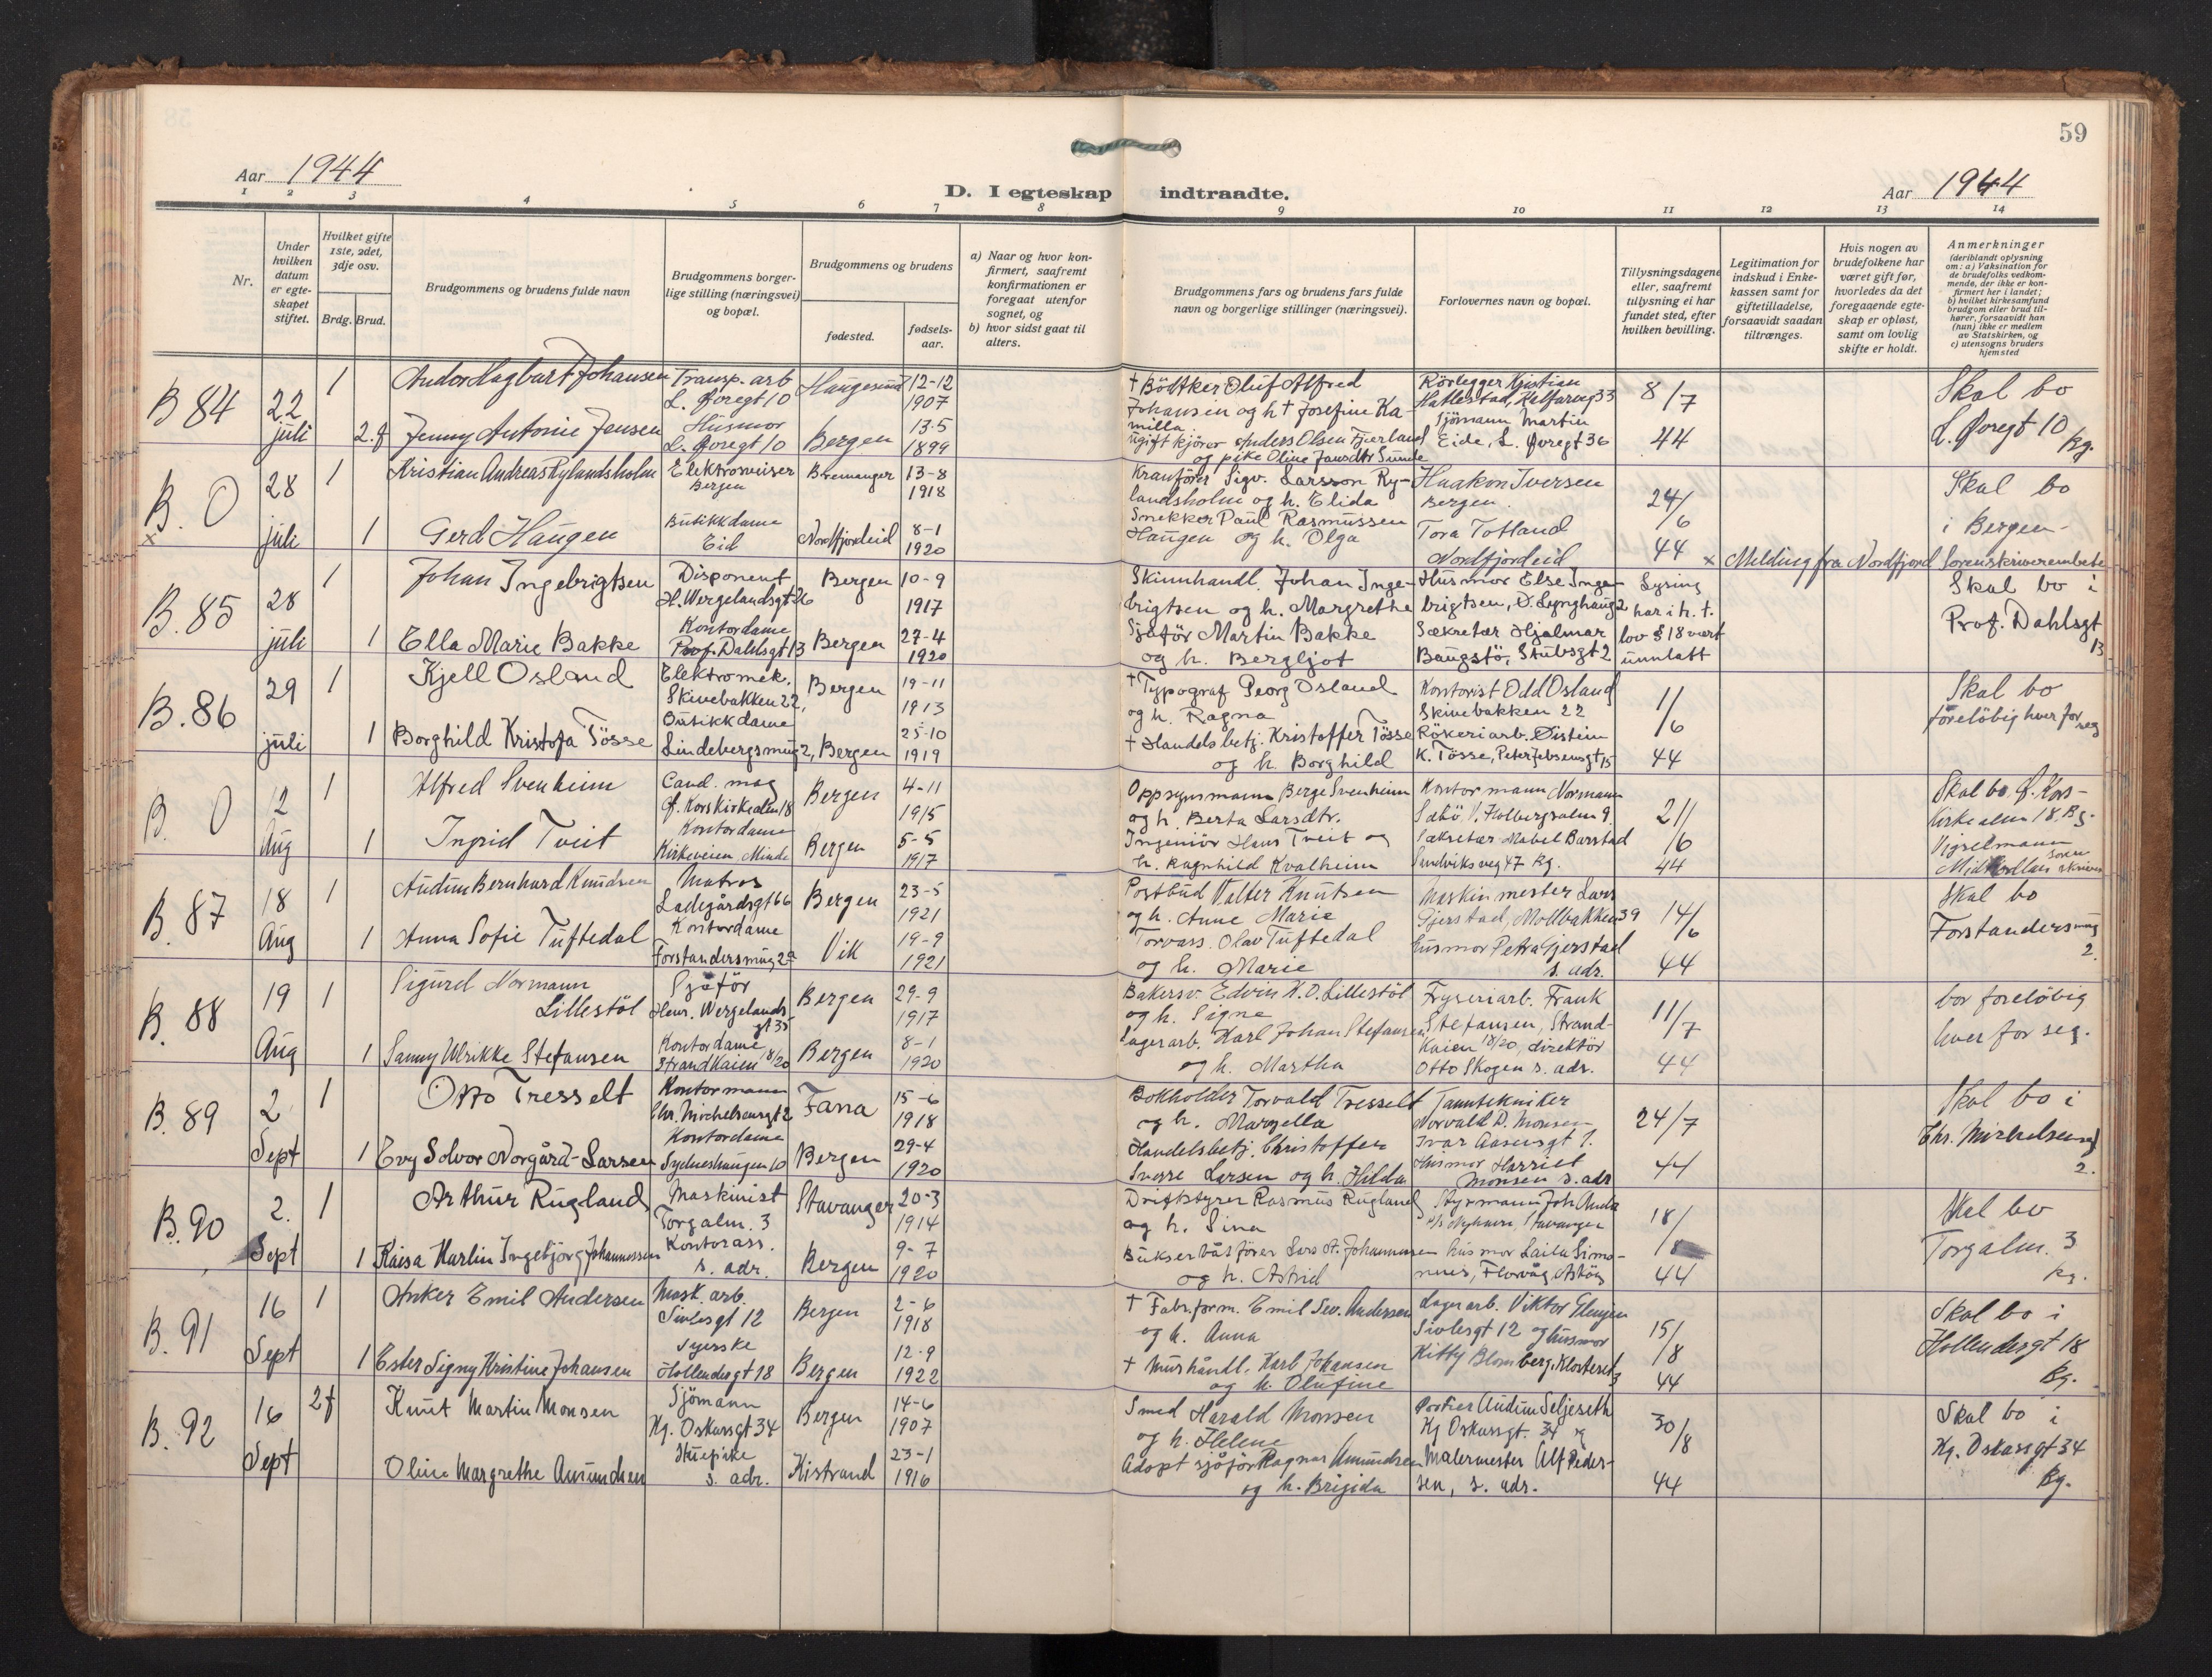 59
Aar 1944
D. I egteskap indtraadte.
Aar 1944
1 2 3 4 5 6 7 8 9 10 11 12 13 14
Nr.
Under hvilken datum er egteskapet stiftet.
Hvilket gifte 1ste, 2det, 3dje osv.
Brdg. Brud.
Brudgommens og brudens fulde navn
Brudgommens borgerlige stilling (næringsvei) og bopæl.
Brudgommens og brudens
fødested.
fødselsaar.
a) Naar og hvor konfirmert, saafremt konfirmationen er foregaat utenfor sognet, og
b) hvor sidst gaat til alters.
Brudgommens fars og brudens fars fulde navn og borgerlige stillinger (næringsvei).
Forlovernes navn og bopæl.
Tillysningsdagene eller, saafremt tillysning ei har fundet sted, efter hvilken bevilling.
Legitimation for indskud i Enkekassen samt for giftetilladelse, forsaavidt saadan tiltrænges.
Hvis nogen av brudefolkene har været gift før, hvorledes da det foregaaende egteskap er opløst, samt om lovlig skifte er holdt.
Anmerkninger (deriblandt oplysning om: a) Vaksination for de brudefolks vedkommende, der ikke er konfirmert her i landet; b) hvilket kirkesamfund brudgom eller brud tilhører, forsaavidt han (hun) ikke er medlem av Statskirken, og c) utensogns bruders hjemsted
B 84 22 juli
1 Andor Hagbart Johansen Transp. arb L. Øregt 10 Haugesund 12-12 1907
2.g Jenny Antonie Jensen Husmor L. Øregt 10 Bergen 13.5 1899
† Bödtker Oluf Alfred
Johansen og h † Josefine Ka-
milla
ugift kjörer Anders Olsen Fjærland
og pike Oline Jansdtr Sunde
Rörlegger Kristian
Hatlestad, Kalfarvg 33
Sjömann Martin
Eide, L. Øregt 36
8/7 44
Skal bo
L. Øregt 10
Bg.
B. 0 x 28 juli
1 Kristian Andreas Rylandsholm Elektrosveiser Bergen Bremanger 13-8 1918
1 Gerd Haugen Butikkdame Eid Nordfjordeid 8-1 1920
Kranförer Sigv. Larsson Ry-
landsholm og h. Elida
Snekker Paul Rasmussen
Haugen og h. Olga
Haakon Iversen
Bergen
Tora Totland
Nordfjordeid
24/6 44
Skal bo
i Bergen -
x Melding fra Nordfjord Sorenskriverembete
B. 85 28 juli
1 Johan Ingebrigtsen Disponent H. Wergelandsgt 26 Bergen 10-9 1917
1 Ella Marie Bakke Kontordame Prof. Dahlsgt 13 Bergen 27-4 1920
Skinnhandl. Johan Inge-
brigtsen og h. Margrethe
Sjåför Martin Bakke
og h. Bergljot
Husmor Else Inge-
brigtsen, D. Lynghaug 2
Sekretær Hjalmar
Baugstö, Stubsgt 2
Lysing
har i h. t.
lov § 18 vært
unnlatt
Skal bo i
Prof. Dahlsgt
13
B. 86 29 juli
1 Kjell Osland Elektromek. Skivebakken 22, Bergen 19-11 1913
1 Borghild Kristofa Tösse Butikkdame Lindebergsmug 2, Bergen 25-10 1919
† Typograf Georg Osland
og h. Ragna
† Handelsbetj. Kristoffer Tösse
og h. Borghild
Kontorist Odd Osland
Skivebakken 22
Rökeriarb. Øistein
K. Tösse, Peter Jebsensgt 15
1/6 44
Skal bo
foreløbig hver for
seg
B. 0 12 Aug
1 Alfred Svenheim Cand. mag Ø. Korskirkealm 18 Bergen 4-11 1915
1 Ingrid Tveit Kontordame Kirkeveien, Minde Bergen 5-5 1917
Oppsynsmann Berge Svenheim
og h. Berta Larsdtr.
Ingeniör Hans Tveit og
h. Ragnhild Kvalheim
Kontormann Normann
Sæbö, V. Holbergsalm 9.
Sekretær Mabel Barstad
Sandviksveg 47 Bg.
21/6 44
Skal bo Ø. Kors-
kirkealm 18, Bg.
Vigselmann
Midthordland soren
skriver
B. 87 18 Aug
1 Audun Bernhard Knudsen Matros Ladegårdsgt 66 Bergen 23-5 1921
1 Anna Sofie Tuftedal Kontordame Forstandersmug 2a Vik 19-9 1921
Postbud Valter Knutsen
og h. Anne Marie
Torvass. Olav Tuftedal
og h. Marie
Maskinmester Lars
Gjerstad, Möllbakken 39
Husmor Petra Gjerstad
s. adr.
14/6 44
Skal bo
Forstandersmug
2.
B. 88 19 Aug
1 Sigurd Normann Lillestöl Sjåför Henr. Wergelands gt 35 Bergen 29-9 1917
1 Sanny Ulrikke Stefansen Kontordame Strandkaien 18/20 Bergen 8-1 1920
Bakersv. Edvin K. O. Lillestöl
og h. Signe
Lagerarb. Karl Johan Stefansen
og h. Martha
Fryseriarb. Frank
Stefansen, Strand-
kaien 18/20, direktör
Otto Skogen s. adr.
11/7 44
bor foreløbig
hver for seg.
B. 89 2 Sept
1 Otto Tresselt Kontormann Chr. Michelsensgt 2 Fana 15-6 1918
1 Evy Solvor Norgård-Larsen Kontordame Sydneshaugen 10 Bergen 29-4 1920
Bokholder Torvald Tresselt
og h. Marsella
Handelsbetj. Christoffer
Sverre Larsen og h. Hilda
Tanntekniker
Norvald D. Monsen
Ivar Aasensgt 7.
Husmor Harriet
Monsen s. adr
24/7 44
Skal bo i
Chr. Michelsensgt
2.
B. 90 2. Sept
1 Arthur Rugland Maskinist Torgalm. 3 Stavanger 20-3 1914
1 Kaisa Karlin Ingebjörg Johannessen Kontorass. s. adr. Bergen 9-7 1920
Driftstyrer Rasmus Rugland
og h. Sina
Bukserbåtförer Lars A. Johannessen
og h. Astrid
Styrmann Joh
Stavanger
husmor Laila Simo-
nnes, Florvåg, Askøy
18/ 44
Skal bo
Torgalm. 3
Bg.
B. 91 16 Sept
1 Anker Emil Andersen Mask. arb. Sivlesgt 12 Bergen 2-6 1918
1 Ester Signy Kristine Johansen Syerske Hollendergt 18 Bergen 12-9 1922
† Fabr. form. Emil Sev. Andersen
og h. Anna
† Murhåndl. Karl Johansen
og h. Olufine
Lagerarb. Viktor
Sivlesgt 12 og husmor
Kitty Blomberg, Klosteret
3
15/8 44
Skal bo i
Hollendergt 18
Bg.
B. 92 16 Sept
2f Knut Martin Monsen Sjömann Kg. Oskarsgt 34 Bergen 14-6 1907
Oline Margrethe Amundsen Stuepike s. adr. Kistrand 23-1 1916
Smed Harald Monsen
og h. Helene
Adopt sjåför Ragnar Amundsen
og h. Brigida
Portier Audun Seljeseth
Kg Oskarsgt. 34 og
Malermester Alf Peder-
sen, s. adr.
30/8 44
Skal bo i
Kg. Oskarsgt 34
Bg.